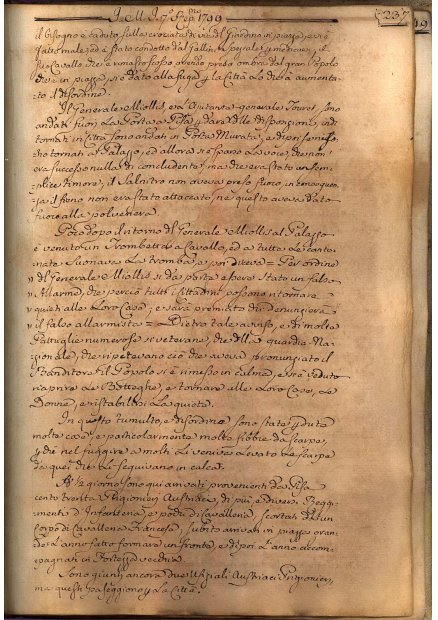 1799
il bisogno è caduto sulla
fatto male, ed è stato condotto dal
suo Cavallo, che è rimasto scosso avendo preso ombra dal gran Popolo
che era in piazza, si è dato alla fuga, e la Città
to il disordine.
Il Generale Miollis, e l'Ajutante generale
andati fuori la Porta a Pisa a dare delle disposizioni, e di
tornati in Città sono andati in Porta Murata, e di poi se ne so=
no tornati al Palazzo, ed allora si è sparsa la voce, che non
era successo nulla di concludente, ma che era stato un sem
plice timore, il Salnitro non aveva preso fuoco, in conseguen
za il fieno non era stato attaccato, ne questo aveva dato
fuoco alla polveriera.
Poco dopo il ritorno del Generale Miollis al Palazzo
è venuto un Trombetta a Cavallo, ed a tutte le canto
nate suonava la tromba, e poi diceva = Per ordine
del Generale Miollis si fa parte essere stato un falso
Allarme, che perciò tutti i Cittadini possono ritornare
quieti alle loro Case, e sarà premiato chi denunzierà
il falso allarmista = Dietro tale avviso, e di molte
Pattuglie numerose si vedevano, che della guardia Na=
zionale, che ripetevano ciò che aveva pronunziato il
Banditore il Popolo si è rimesso in calma, e si è veduto
riaprire le Botteghe, e tornare alle loro Case, le
Donne, e ristabilirsi la quiete.
In questo tumulto, e disordine sono state perdute
molte cose, e particolarmente molte fibbie da scarpe,
perchè nel fuggire a molti li venivan levate le scarpe
da quei che li seguivano in calca.
A 1/2 giorno sono qui arrivati provenienti da Pisa
cento trenta Prigionieri Austriaci, di più, e diversi Reggi=
menti d'Infanteria, e pochi di Cavalleria, scortati da un
Corpo di Cavalleria Francese, subito arrivati in piazza gran=
de li anno fatto formare un fronte, e di poi li anno accom=
pagnati in Fortezza vecchia.
Sono giunti ancora due Ufiziali Austriaci Prigionieri,
ma questi passeggiono per la Città.